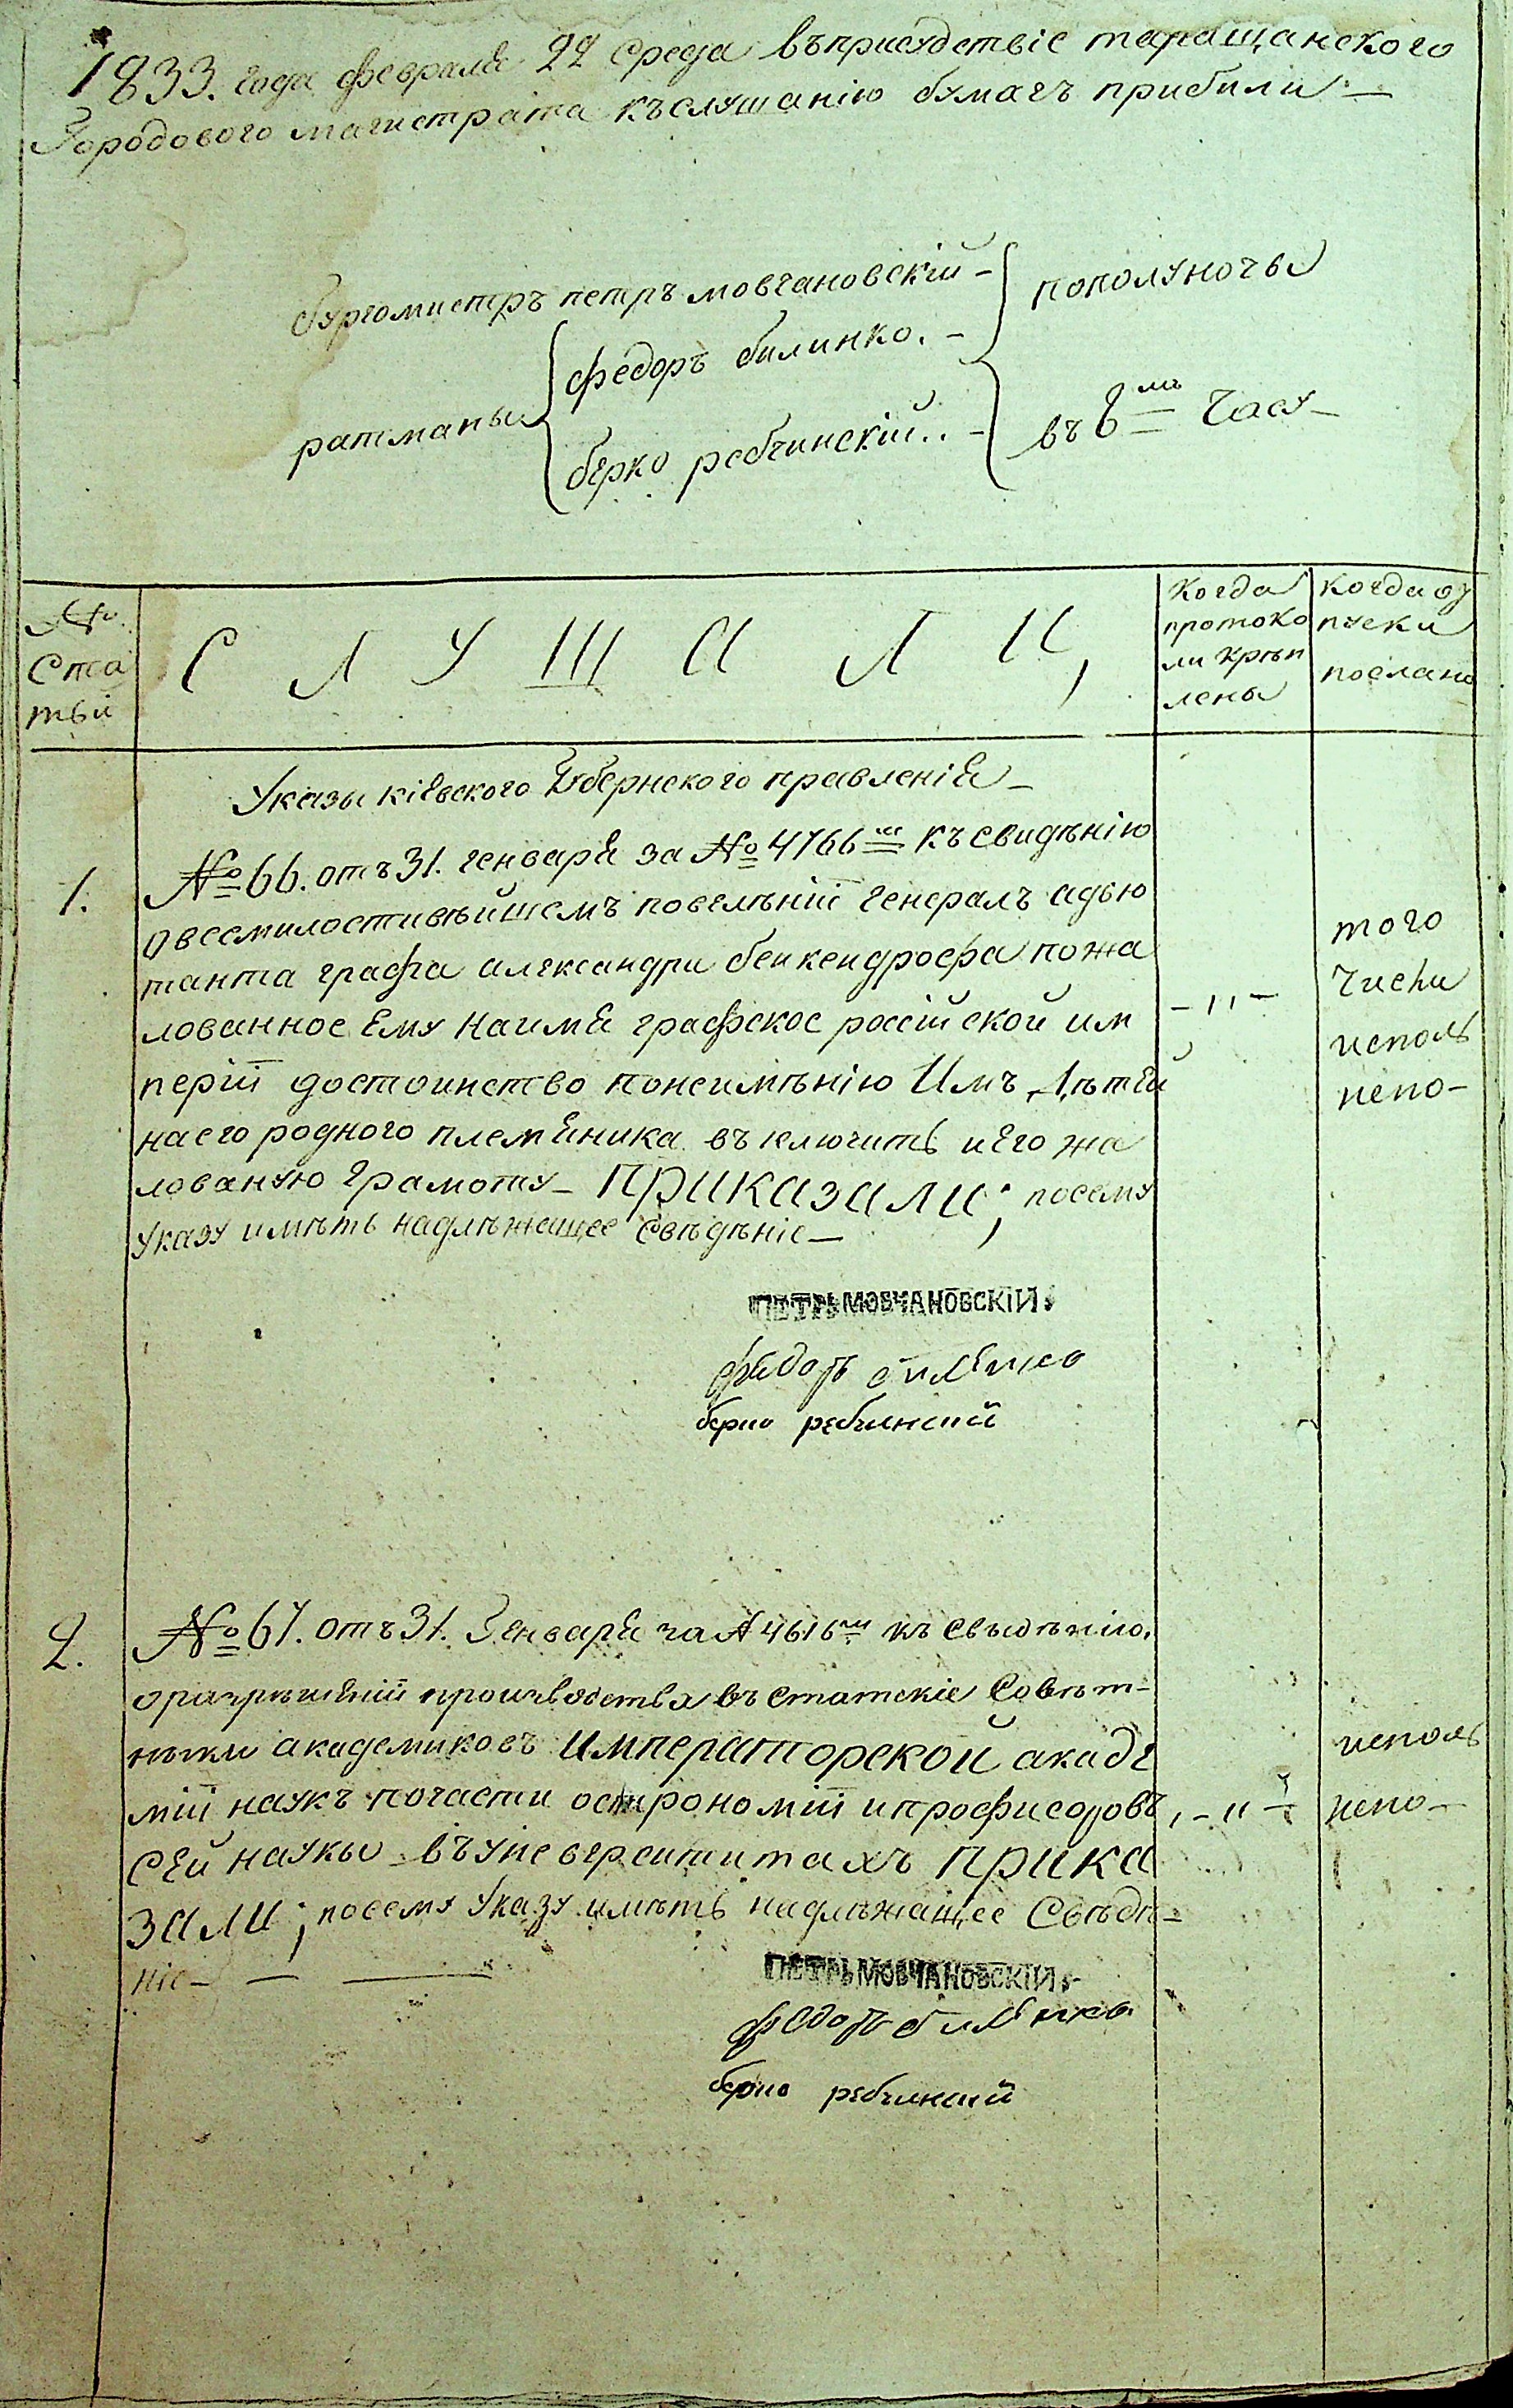 1833. года февраля 22 Среда въприсудствіе таращанского
Городового магистрата къслушанію бумагъ прибили —
бургомистръ петръ мовчановскій —
пополуночы
федоръ билинко. —
ратманы
берко ребчинскій.. —
въ 6 мъ Часу —
№
Ста
тьи
С Л У Ш А Л И,
Когда
протоко
ли крѣп
лены
когда оу
пуски
послано
Указы кіевского Губернского правленія —
1.
№ 66. отъ 31. генваря за № 4766 м къ свидѣнію
овсемилостивѣйшемъ повелѣніи генералъ адью
танта графа александра бенкендрофа пожа
лованное Ему наимя графское россійской им
періи достоинство понеимѣнію Имъ Дѣтей
наего родного племяника въключить иЕго жа
лованую грамоту — приказали; посему
указу имѣть надлѣжащее свѣдѣніе —
— ı ı —
того
Числа
исполь
нено —
ПЕТРЪ МОВЧАНОВСКІЙ.
федоръ билѣнко
берко ребчинский
2.
№ 67. отъ 31. Генваря за № 4616 м къ Свѣдѣнію.
оразрѣшеніи произвѣдства въ статскіе Совѣт-
ники академиковъ Императорской акаде
міи наукъ почасти острономіи ипрофисоровъ
Сей науки въуневерситетахъ прика
зали; посему Указу имѣть надлѣжащее Свѣдѣ-
ніе — — —
— ıı —
исполь
нено —
ПЕТРЪ МОВЧАНОВСКІЙ.
федоръ билѣнко
берко ребчинский